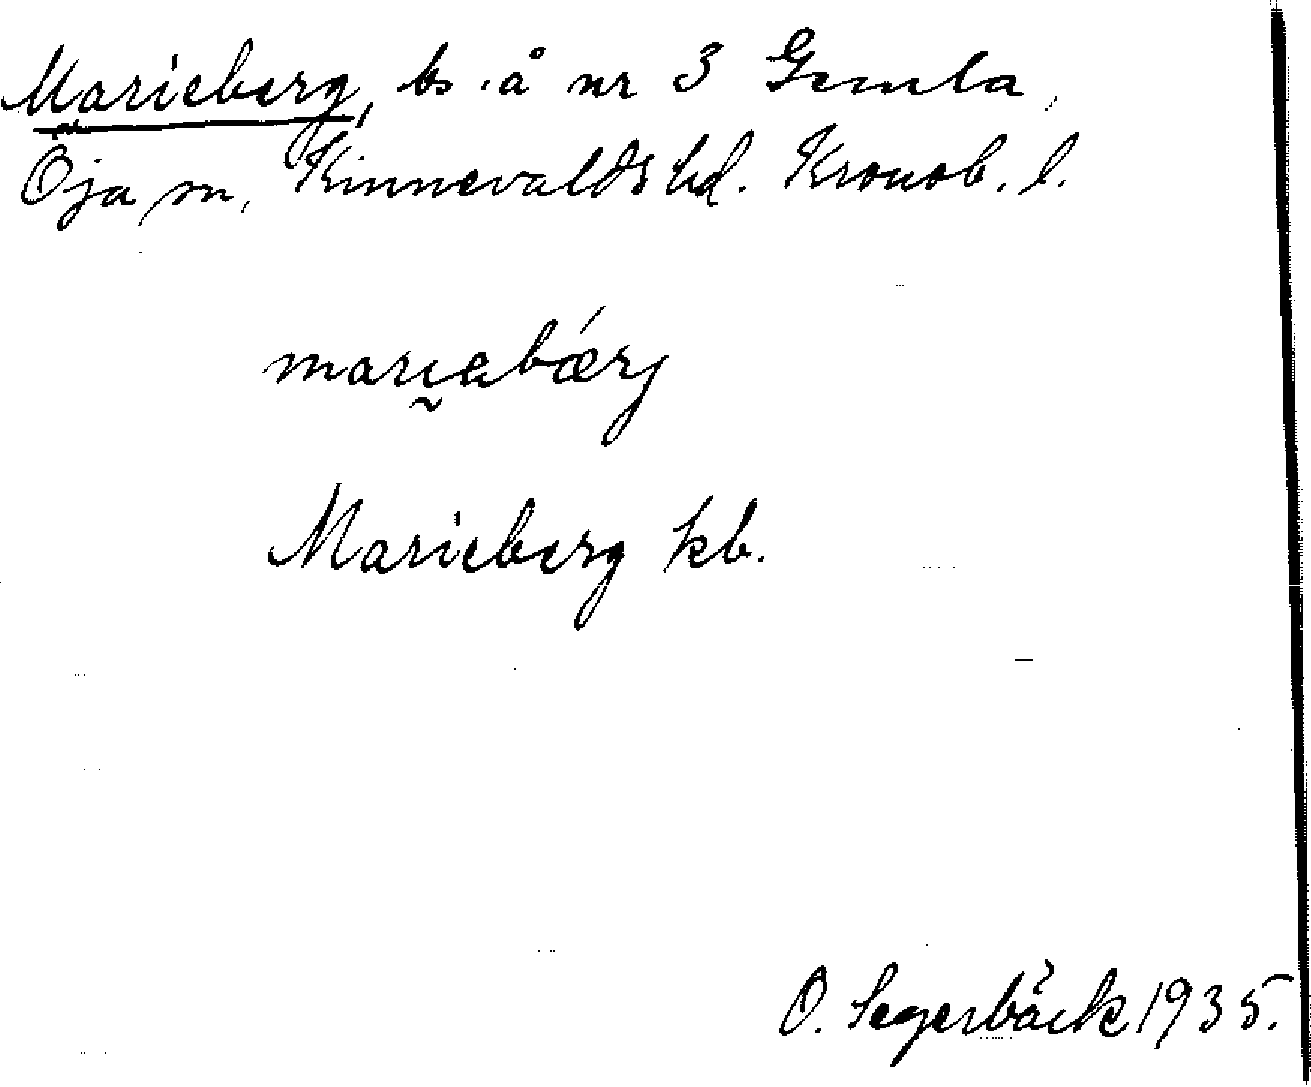 Marieberg, bs. å nr 3 Gemla,
Öja sn, Kinnevalds hd. Kronob. l.
marıabǽrj
Marieberg kb.
O. Segerbäck 1935.